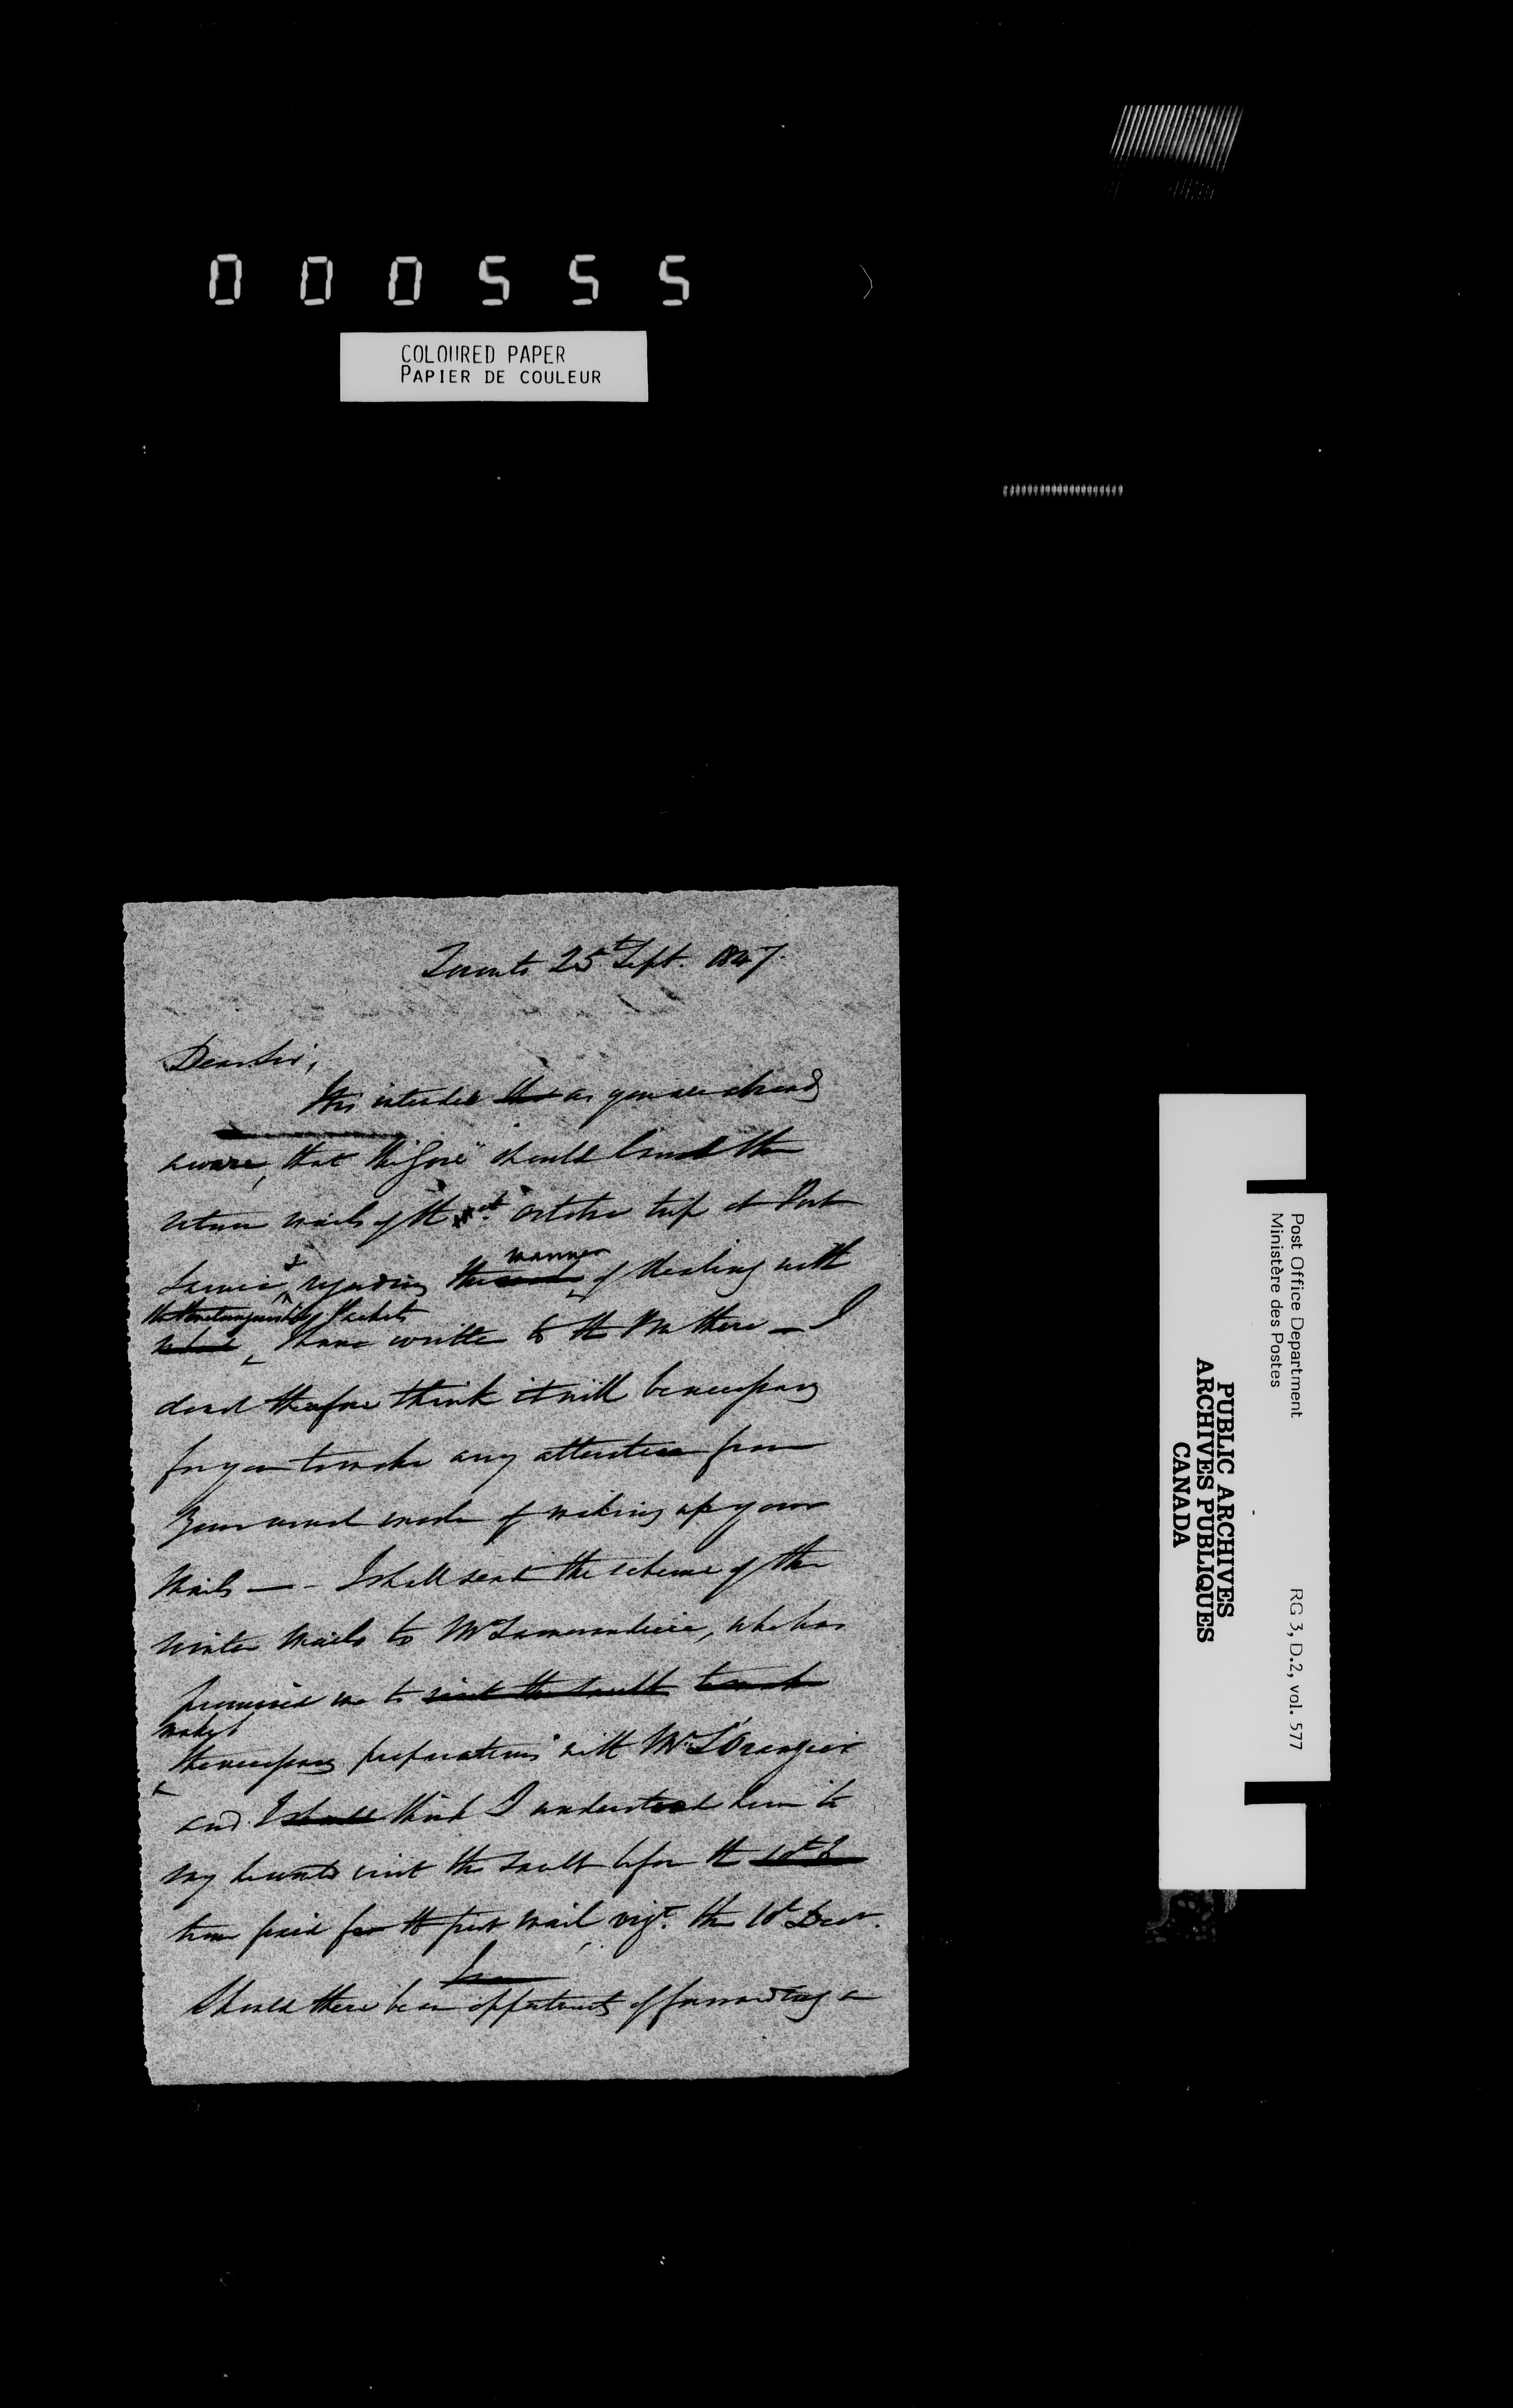 000555
COLOURED PAPER
PAPIER DE COULEUR
Toronto 25th Sept. 1847.
Dear Sir,
It is intended that as you are already
aware, that the "Gore" should land the
return mails of the October trip at Port
Sarnia, & regarding the manner of dealing with
the Penetanguishene Packets I have written to the PM there — I
do not therefore think it will be necessary
for you to make any alteration from
your usual mode of making up your
Mails — I shall send the scheme of the
Winter Mails to Mr Lamorandiere, who has
promised me to visit the Sault to make
make
the necessary preparations with Mr L'Orangier
and I shall think I understood him to
say he would visit the Sault before the 10th
time fixed for the first mail, vizt. the 10th Decr.
Should there be an opportunity of forwarding a
Post Office Department
Ministère des Postes
RG 3, D.2, vol. 577
PUBLIC ARCHIVES
ARCHIVES PUBLIQUES
CANADA